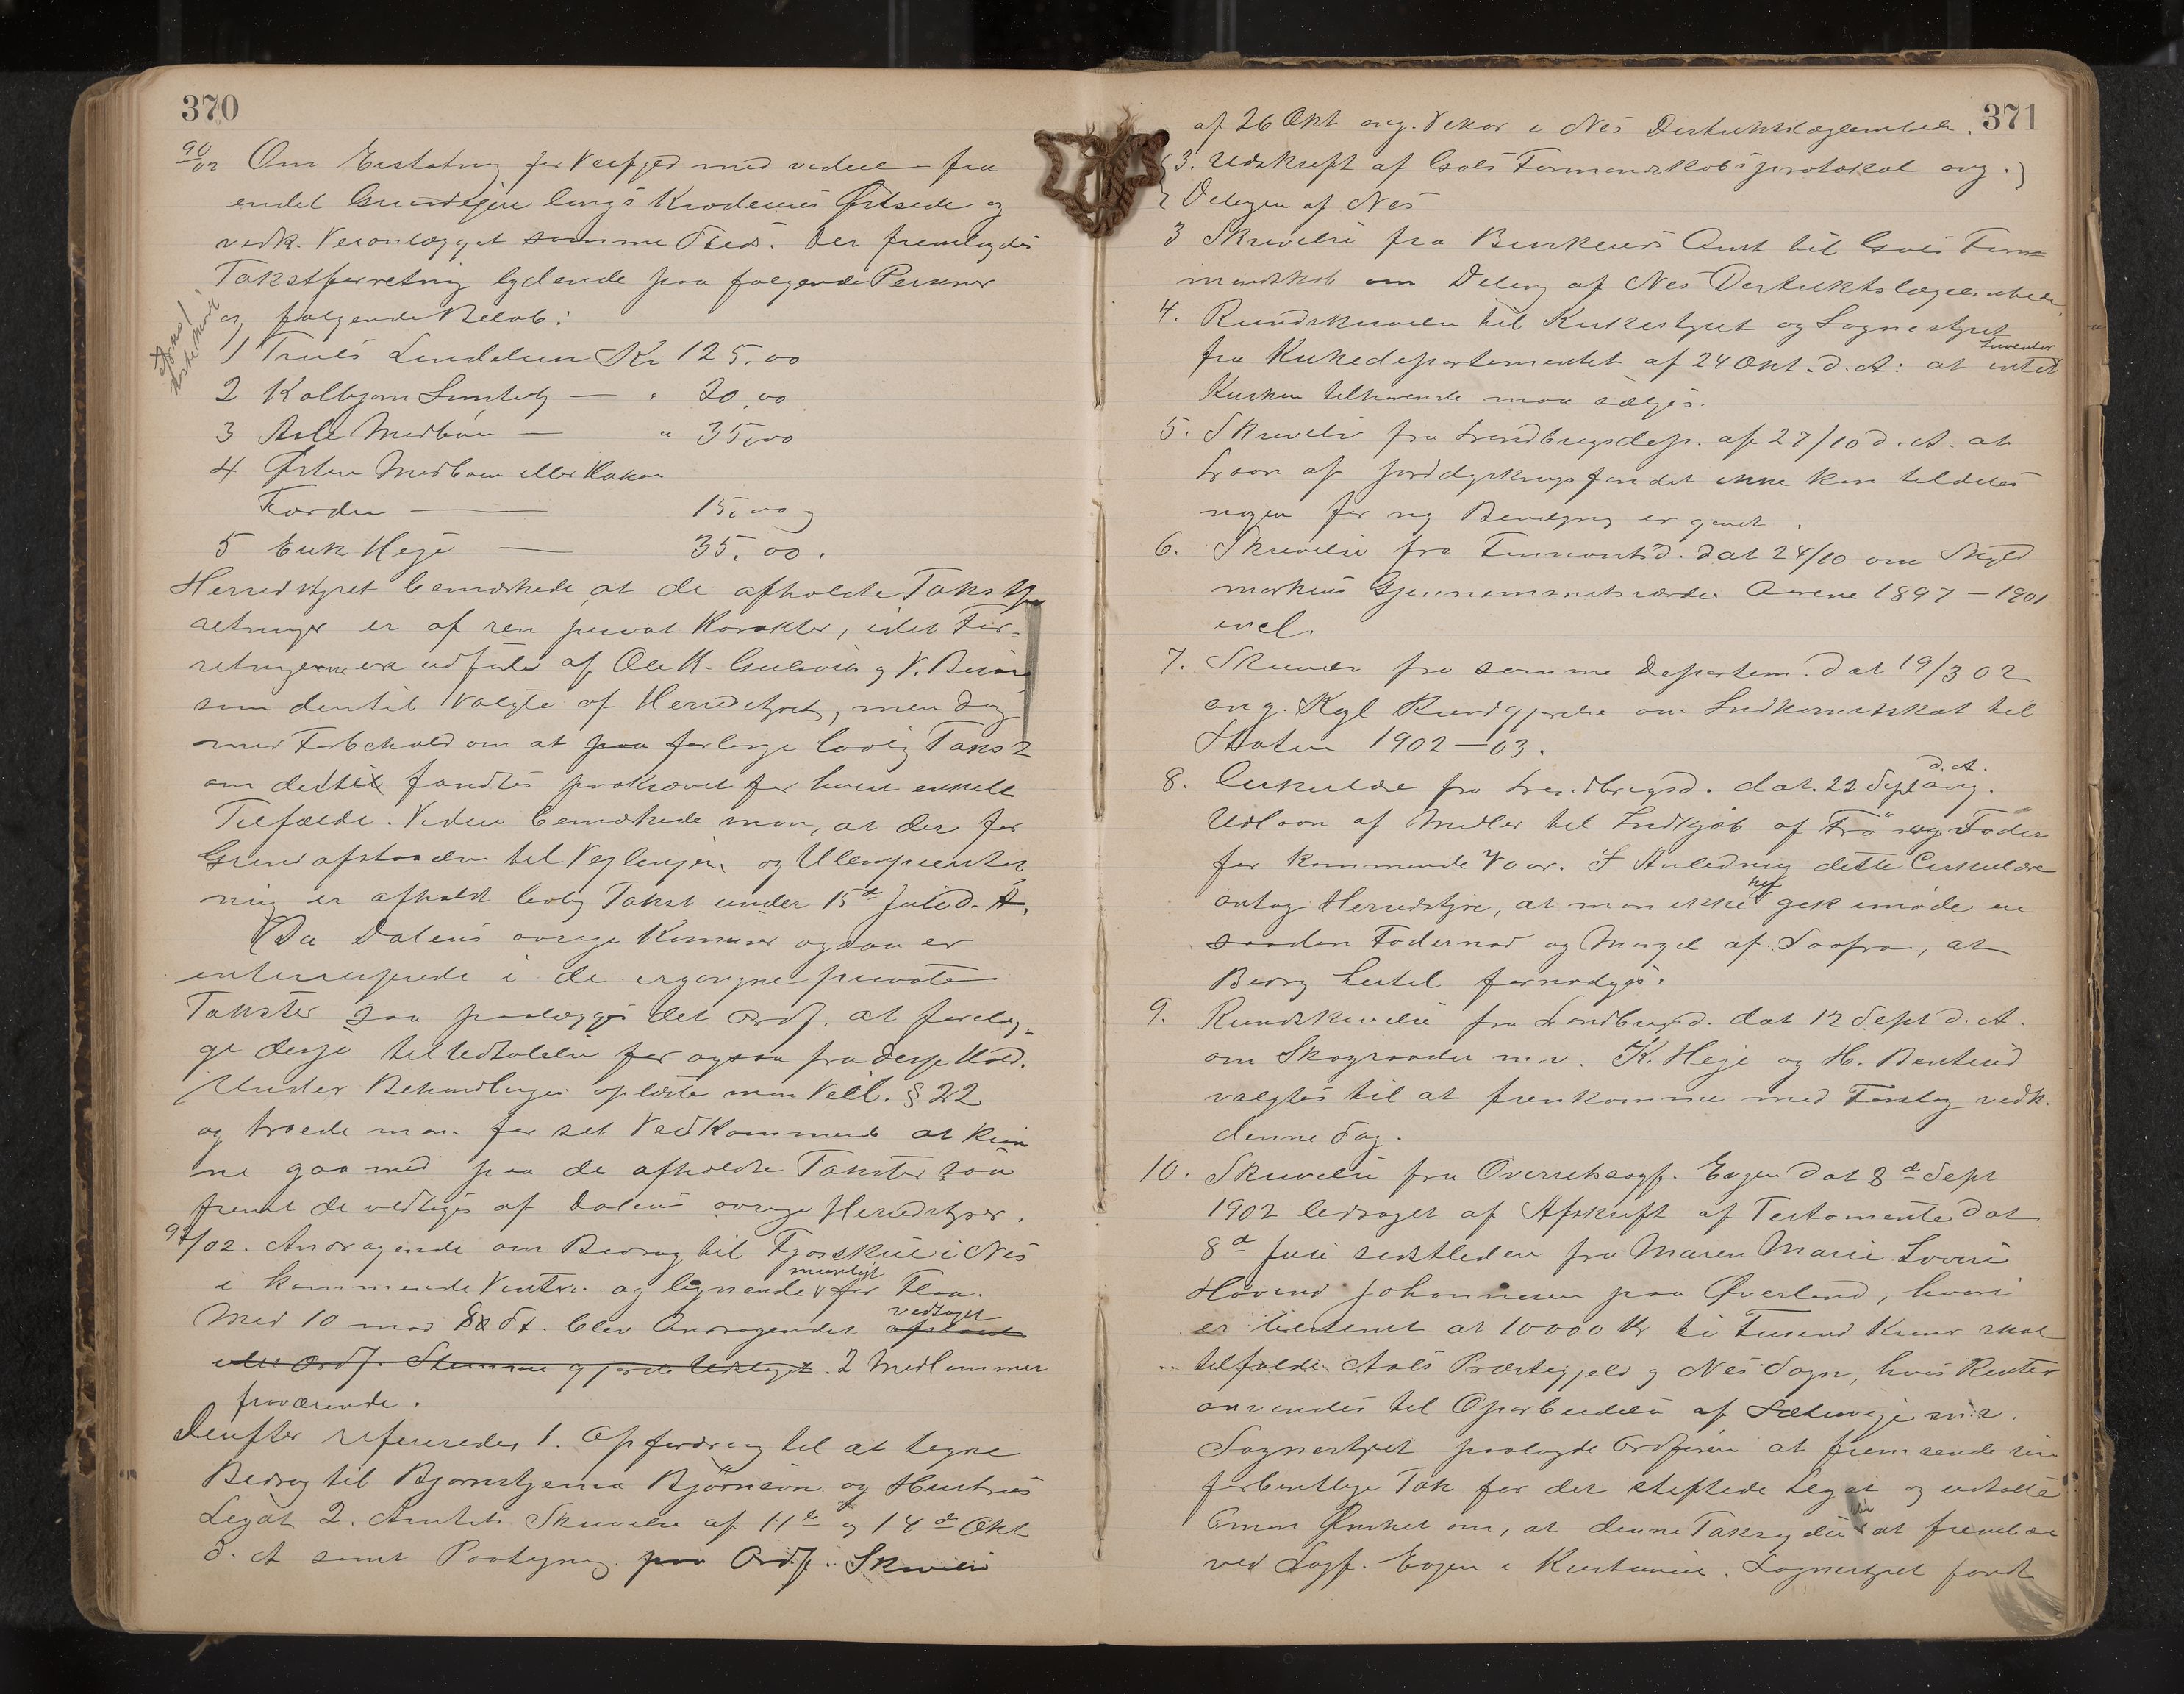 370
90/02 Om Erstatning for Veifyld med videre fra
endel Grundejere langs Krødernes Østside og
vedk. Veranlægget samme Steds. Der fremlagdes
Takstforretning lydende paa følgende Personer
og følgende Beløb:
1 Truls Lindelien Kr 125.00
2 Kolbjørn — " 20,00
3 Asle Medbøen — " 35,00
4 Østen Medbøen eller Hakon
— 15,00 og
5 Erik Heje — 35.00.
Herredstyret bemærkede, at de afholdte Takstfor
retninger er af ren privat Karakter, idet For=
retningerne ere udførte af Ole K. Gulsvik og V.
som dertil valgte af Herredstyret, men dog
med Forbehold om at paa forlange lovlig Takst
om dertil fandtes paakrævet for hvert enkelt
Tilfælde. Videre bemærkede man, at der for
Grundafstaaelse til Veglinjen og Ulempeerstat
ning er afholdt lovlig Takst under 15de Juli d. A.
Da Dalens øvrige Kommuner ogsaa er
interesserede i de ergangne private
Takster saa paalægges det Ordf. at forelæg=
ge disse til Udtalelse for ogsaa fra disse Hold.
Under Behandlingen oplæste man Veil. § 22
og troede man for sit Vedkommende at kun
ne gaa med paa de afholdte Takster saa
fremt de vedtages af Dalens øvrige Herredstyrer.
91/02. Andragende om Bidrag til Fjøsskole i Nes
i kommende Vinter og lignende mundligt for Flaa.
Med 10 mod 8 St. blev Andragendet vedtaget afslaaet
eller Ordf. Stemme gjorde Udslaget. 2 Medlemmer
fraværende.
Derefter refereredes 1. Opfordring til at tegne
Bidrag til Bjørnstjerne Bjørnson og Hustrues
Legat 2. Amtets Skrivelse af 11te og 14de Okt
d. A samt Paategning paa Ordf. Skrivelse
371
af 26 Okt ang. Vikar i Nes Distriktslægeembede.
3. Udskrift af Gols Formandskabsprotokol ang.
Delingen af Nes
3 Skrivelse fra Buskeruds Amt til Gols For
mandskab om Deling af Nes Distriktslægeembede
4. Rundskrivelse til Kirkestyret og Sognestyret
fra Kirkedepartementet af 24 Okt. d. A: at intet Inventar
Kirken tilhørende maa sælges.
5. Skrivelse fra Landbrugsdep. af 27/10 d. A. at
Laan af Jorddyrkningsfondet ikke kan tildeles
nogen før ny Bevilgning er gjordt.
6. Skrivelse fra Finmantsd. dat 24/10 om Skyld
markens Gjennemsnitsværdi Aarene 1897 — 1901
incl.
7. Skrivelse fra samme Departem. dat 19/3 02
ang. Kgl Kundgjørelse om Indkomstskat til
Staten 1902—03.
8. Cirkulære fra Landbrugsd. dat. 22 Sept d. A. ang.
Udlaan af Midler til Indkjøb af Frø og Foder
for kommende Vaar. I Anledning dette Cirkulære
antog Herredstyre, at man ikke gik imøde en
saadan Fodernød og Mangel af Saafrø, at
Bidrag hertil fornødiges.
9. Rundskrivelse fra Landbrugsd. dat 12 Sept d. A.
om Skograader m.v. K. Heje og H. Bentsrud
valgtes til at fremkomme med Forslag vedk.
denne Sag.
10. Skrivelse fra Overretssagf. Evjen dat 8de Sept
1902 ledsaget af Afskrift af Testamente dat
8de Juli sidstleden fra Maren Marie Lovise
Høvend Johannesen paa Øverland, hvori
er bestemt at 10000 Kr ti Tusend Kroner skal
tilfalde Aals Præstegjeld og Nes Sogn, hvis Renter
anvendes til Oparbeidelse af Sæterveje m.v.
Sognestyret paalagde Ordføreren at fremsende sin
forbindtlige Tak for det stiftede Legat og udtalte
man Ønsket om, at denne Taksigelse blir at frembære
ved Sagf. Evjen i Kristiania. Sognestyret fandt